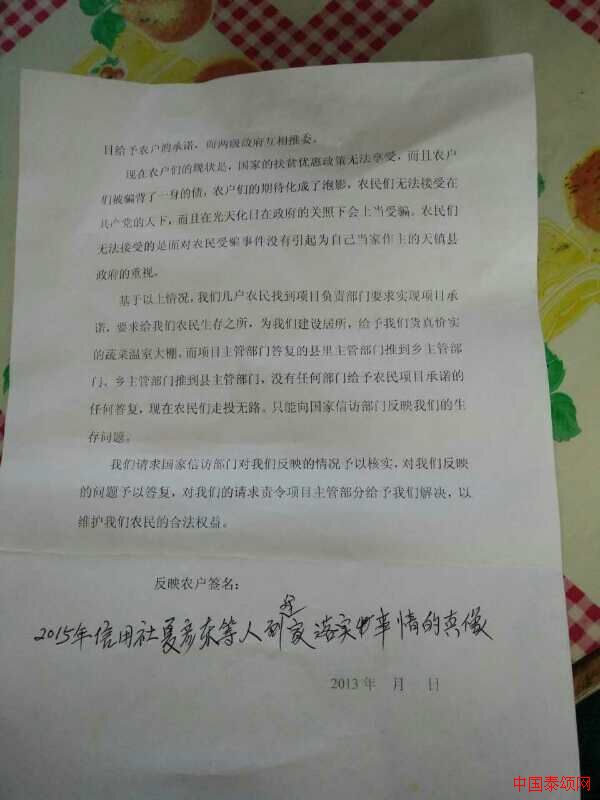 目给予农户的承诺，而两级政府互相推委。
现在农户们的现状是，国家的扶贫优惠政策无法享受，而且农户
们被骗背了一身的债，农户们的期待化成了泡影，农民们无法接受在
共产党的天下，而且在光天化日在政府的关照下会上当受骗。农民们
无法接受的是面对农民受骗事件没有引起为自己当家作主的天镇县
政府的重视。
基于以上情况，我们几户农民找到项目负责部门要求实现项目承
诺，要求给我们农民生存之所，为我们建设居所，给予我们货真价实
的蔬菜温室大棚。而项目主管部门答复的县里主管部门推到乡主管部
门、乡主管部门推到县主管部门，没有任何部门给予农民项目承诺的
任何答复，现在农民们走投无路。只能向国家信访部门反映我们的生
存问题。
我们请求国家信访部门对我们反映的情况予以核实，对我们反映
的问题予以答复，对我们的请求责令项目主管部分给予我们解决，以
维护我们农民的合法权益。
反映农户签名：
2015年信用社夏彦东等人到家落实事情的真像
2013年 月 日
中国泰颂网